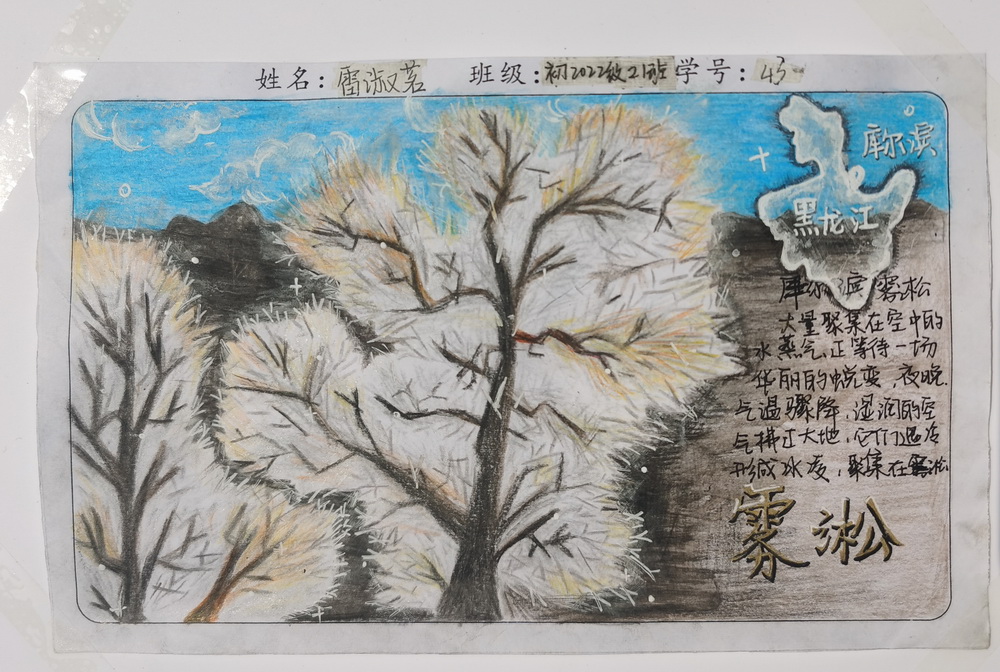 姓名：雷淑茗 班级：初2022级21班 学号：43
库尔滨
黑龙江
库尔滨雾松
大量聚集在空中的
水蒸气，正等待一场
华丽的蜕变，夜晚，
气温骤降，湿润的空
气拂过大地，它们遇冷
形成冰凌，聚集在雾凇
雾淞